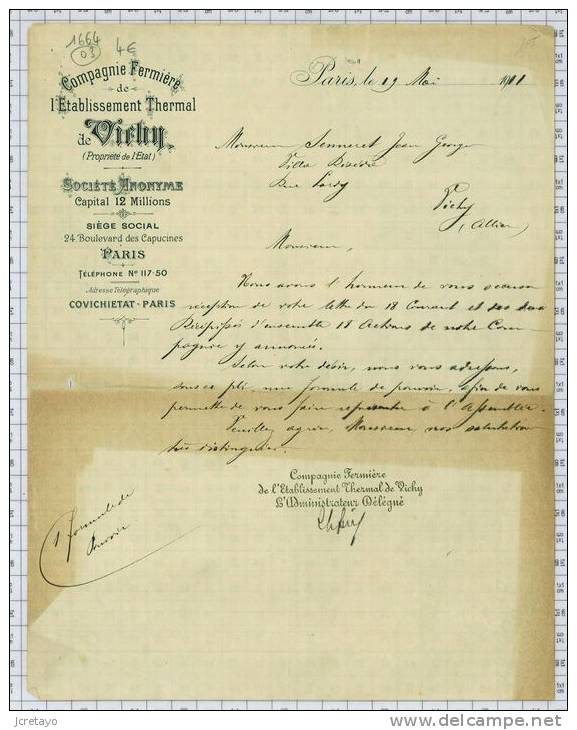 1664
03
4€
Compagnie Fermière
de
l'Etablissement Thermal
de Vichy
(Propriété de l'Etat)
SOCIÉTÉ ANONYME
Capital 12 Millions
SIÈGE SOCIAL
24, Boulevard des Capucines
PARIS
TÉLÉPHONE Nº 117-50
Adresse Télégraphique
COVICHIETAT-PARIS
Paris, le 19 Mai 1911
Monsieur Senneret Jean Georges
Villa Rivière
Rue Lardy
Vichy
(Allier)
Monsieur,
Nous avons l'honneur de vous accuser
réception de votre lettre du 18 Courant et des deux
Récépissés d'ensemble 18 Actions de notre Com-
pagnie y annoncés.
Selon votre désir, nous vous adressons,
sous ce pli, une formule de pouvoir, afin de vous
permettre de vous faire représenter à l'Assemblée.
Veuillez agréer, Monsieur, nos salutations
très distinguées.
Compagnie Fermière
de l'Etablissement Thermal de Vichy
L'Administrateur Délégué
1 formule de
Pouvoir
jcretayo
delcampe.net